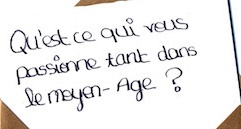 Qu'est ce qui vous
passionne tant dans
le moyen-Age ?